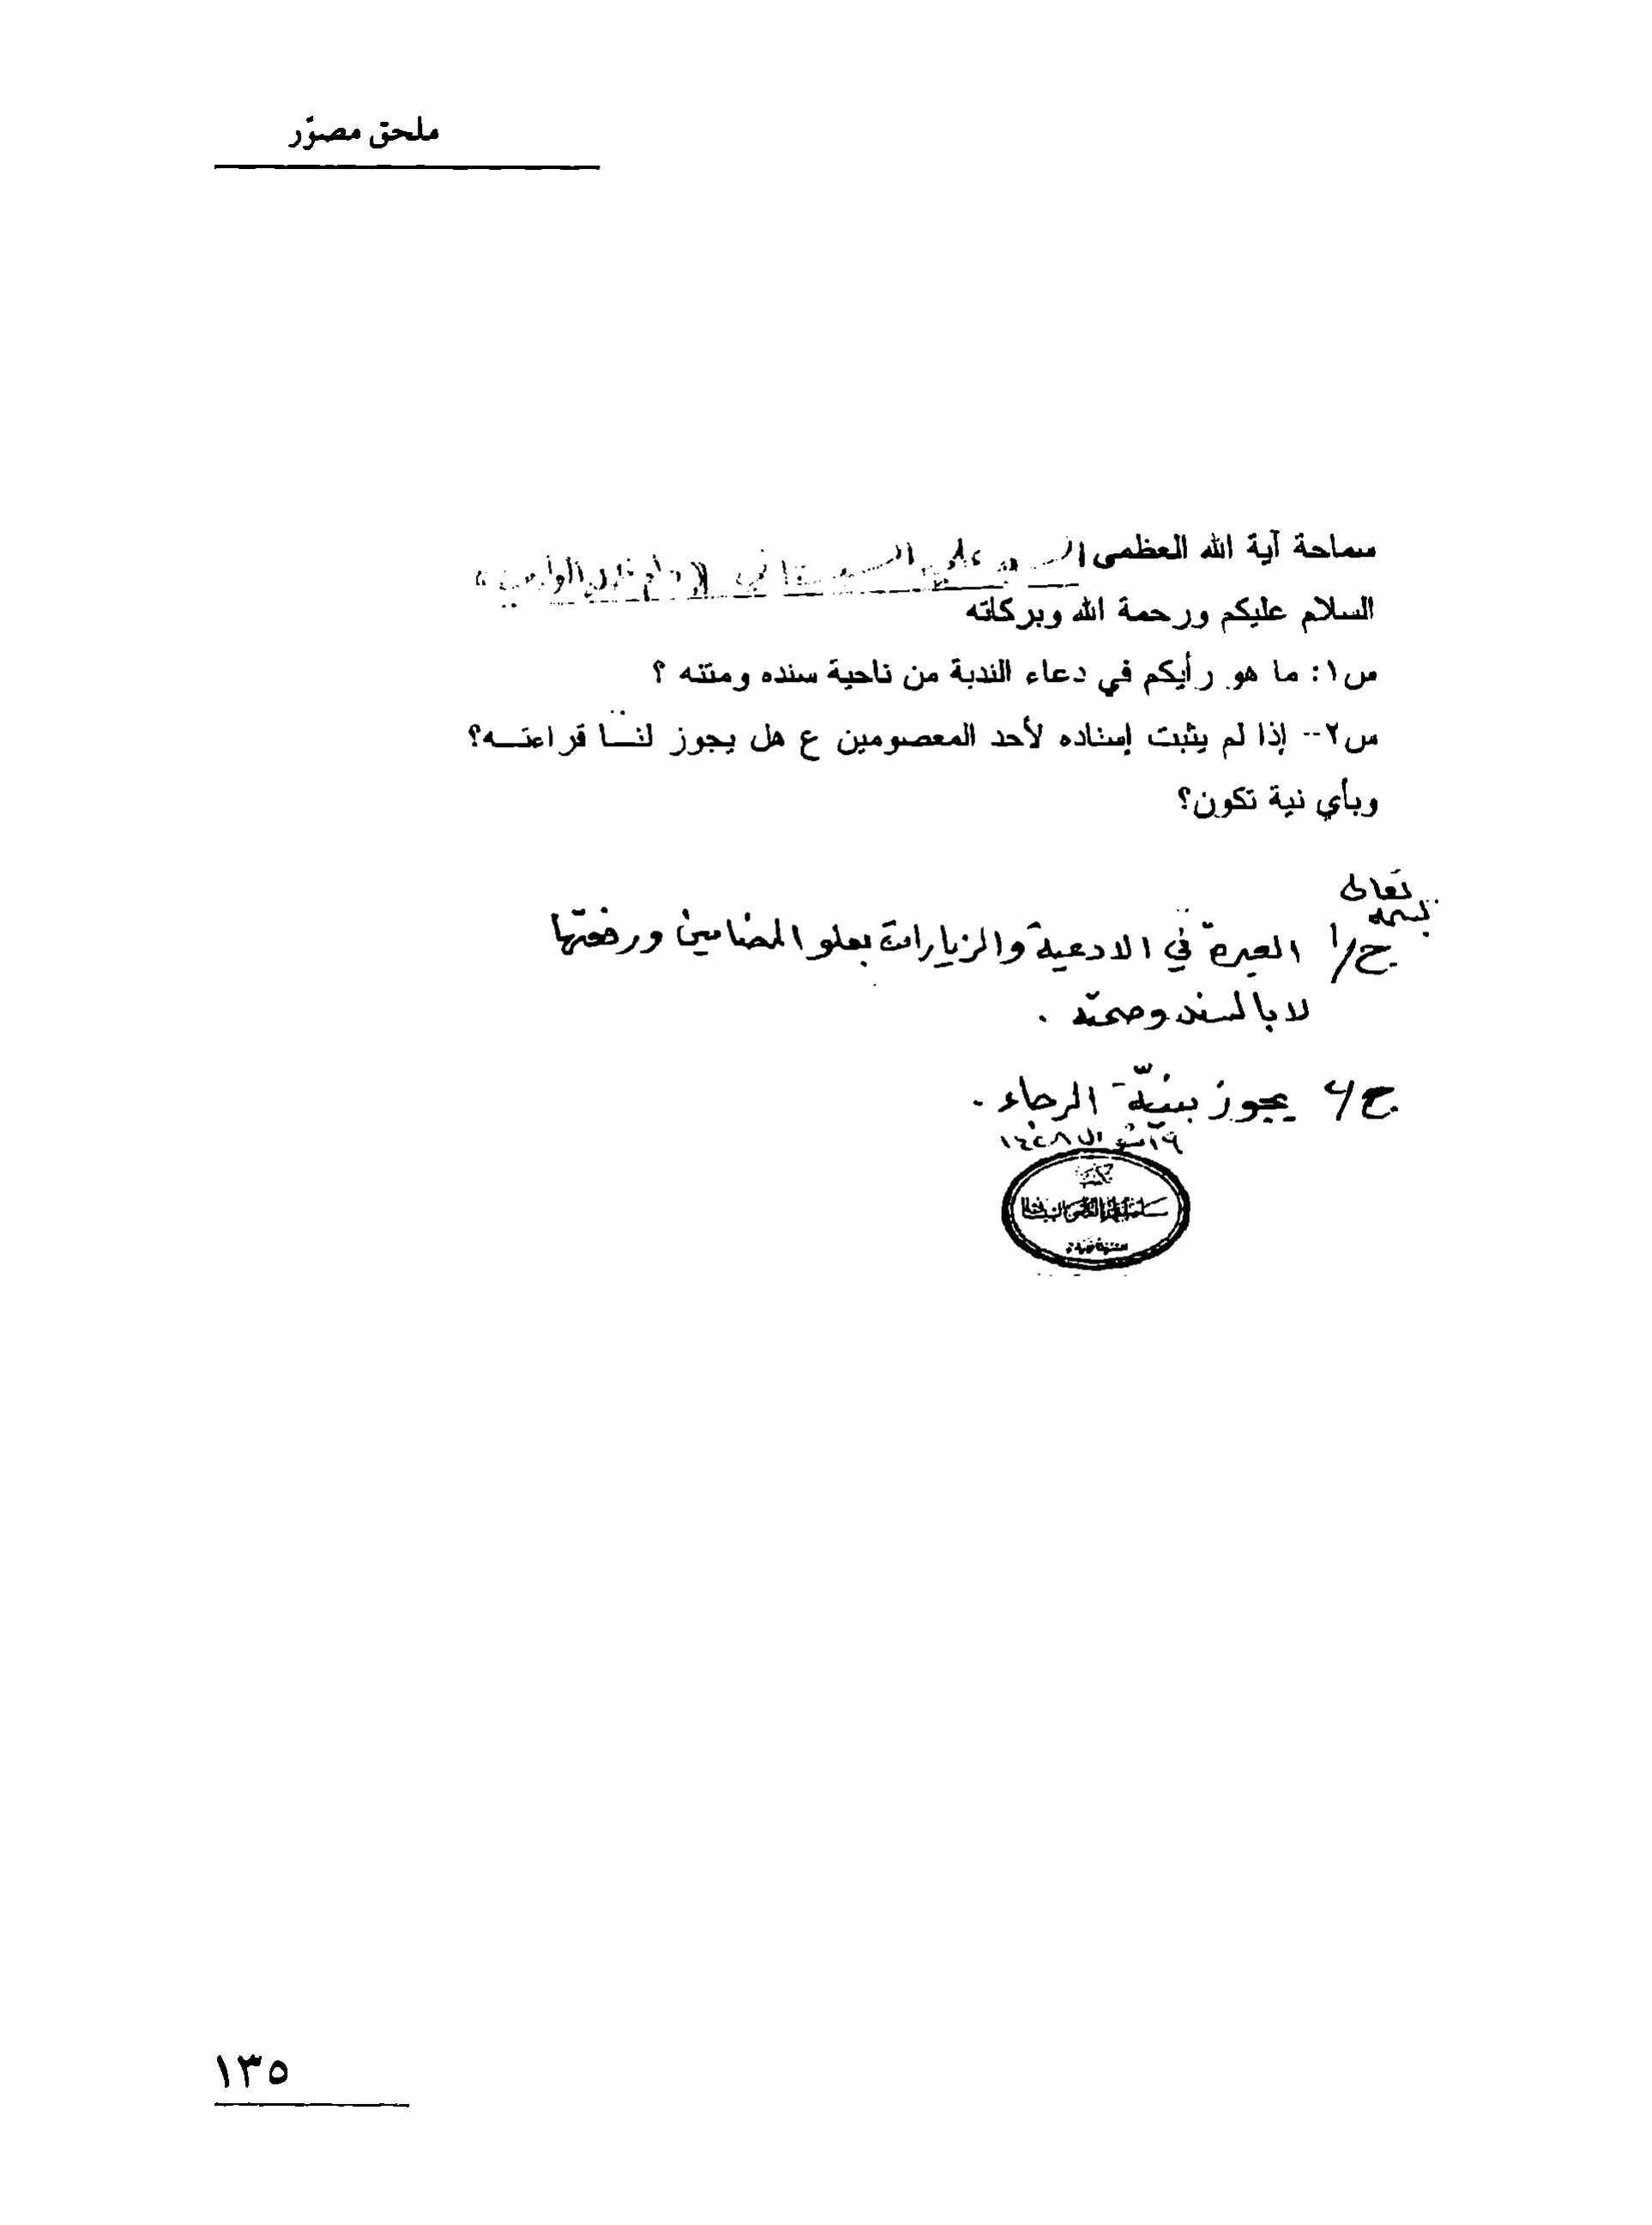 ملحق مصوّر
سماحة آية الله العظمى السيد علي السيستاني
السلام عليكم ورحمة الله وبركاته
س١: ما هو رأيكم في دعاء الندبة من ناحية سنده ومتنه ؟
س٢-- إذا لم يثبت إسناده لأحد المعصومين ع هل يجوز لنا قراءته؟
وبأي نية تكون؟
بسمه تعالى
ج/١ العبرة في الادعية والزيارات بعلو المضامين ورفعتها
لا بالسند وصحته .
ج/٢ يجوز بنيّة الرجاء .
شوال ١٤٢٨
مكتب
١٣٥